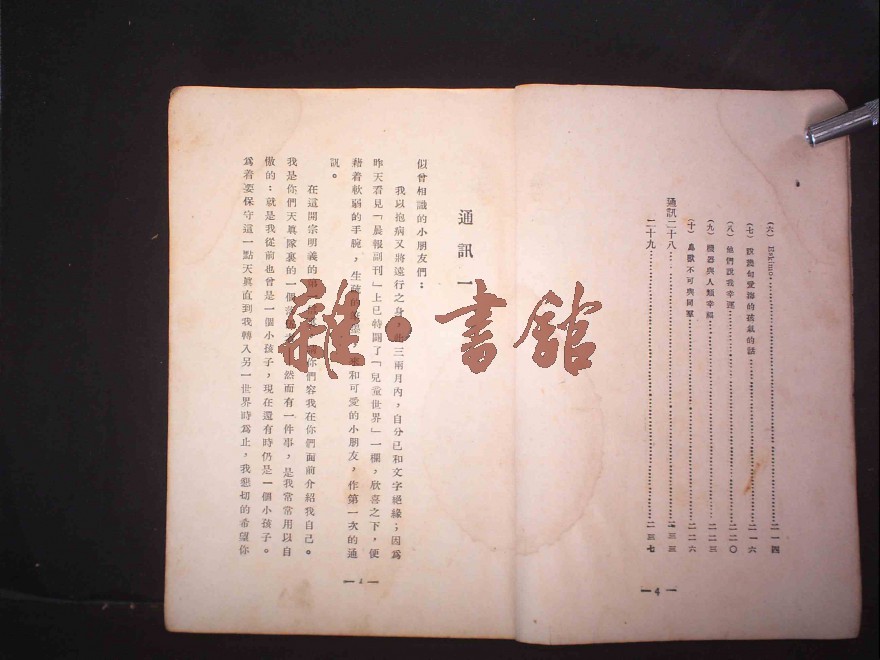 （六） Eskimo……二一四
（七） 說幾句愛海的孩氣的話……二一六
（八） 他們說我幸運……二二〇
（九） 機器與人類幸福……二二三
（十） 鳥獸不可與同羣……二二六
通訊二十八……二三三
二十九……二三七
— 4 —
通訊一
似曾相識的小朋友們：
我以抱病又將遠行之身，此三兩月內，自分已和文字絕緣；因爲
昨天看見「晨報副刊」上已特闢了「兒童世界」一欄，欣喜之下，便
藉着軟弱的手腕，生疏的筆墨，來和可愛的小朋友，作第一次的通
訊。
在這開宗明義的第一 你們容我在你們面前介紹我自己。
我是你們天眞隊裏的一個 然而有一件事，是我常常用以自
傲的：就是我從前也曾是一個小孩子，現在還有時仍是一個小孩子。
爲着要保守這一點天眞直到我轉入另一世界時爲止，我懇切的希望你
雜·書館